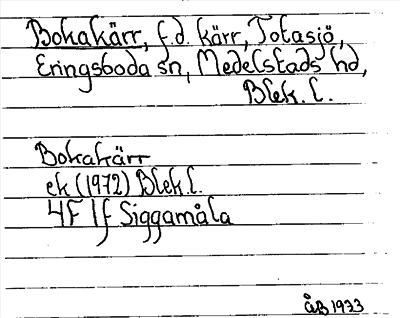 Bokakärr, f.d. kärr, Totasjö,
Eringsboda sn, Medelstads hd,
Blek. l.
Bokakärr
ek (1972) Blek. l.
4F 1f Siggamåla
ÅB 1973